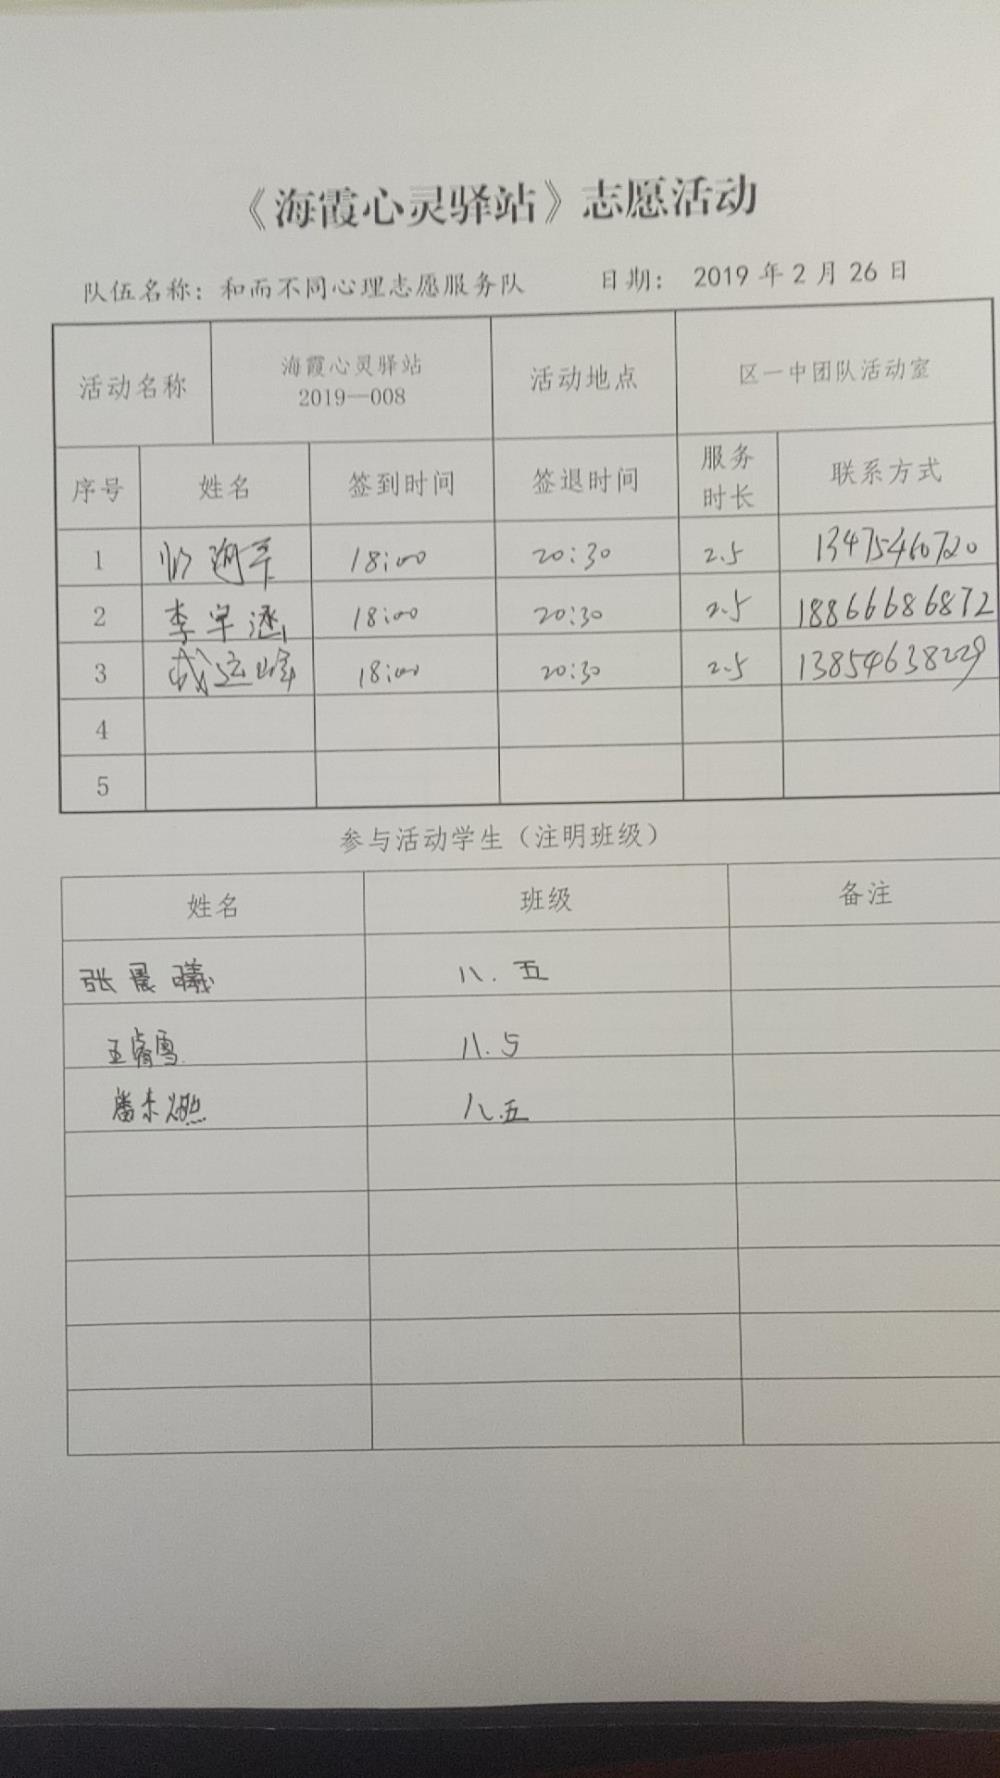 《海霞心灵驿站》志愿活动
队伍名称：和而不同心理志愿服务队 日期： 2019 年 2 月 26 日
活动名称 海霞心灵驿站 2019—008 活动地点 区一中团队活动室
序号 姓名 签到时间 签退时间 服务时长 联系方式
1 18:00 20:30 2.5 13475460720
2 李宇涵 18:00 20:30 2.5 18866686872
3 成运峰 18:00 20:30 2.5 13854638229
4
5
参与活动学生（注明班级）
姓名 班级 备注
张晨曦 八.五
王睿雪 八.5
八.五